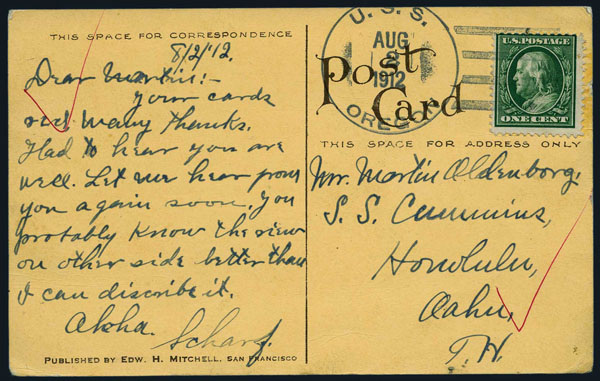 THIS SPACE FOR CORRESPONDENCE
8/2/12.
Dear Martin:-
Your cards
recd many thanks.
Glad to hear you are
well. Let me hear from
you again soon. You
probably know the view
on other side better than
I can discribe it.
Aloha.
Scharf.
PUBLISHED BY EDW. H. MITCHELL, SAN FRANCISCO
U. S. S.
AUG
2
1912
OREGON
Post
Card
U.S. POSTAGE
ONE CENT
THIS SPACE FOR ADDRESS ONLY
Mr. Martin Oldenborg,
S. S. Cummins,
Honolulu,
Oahu,
T. H.